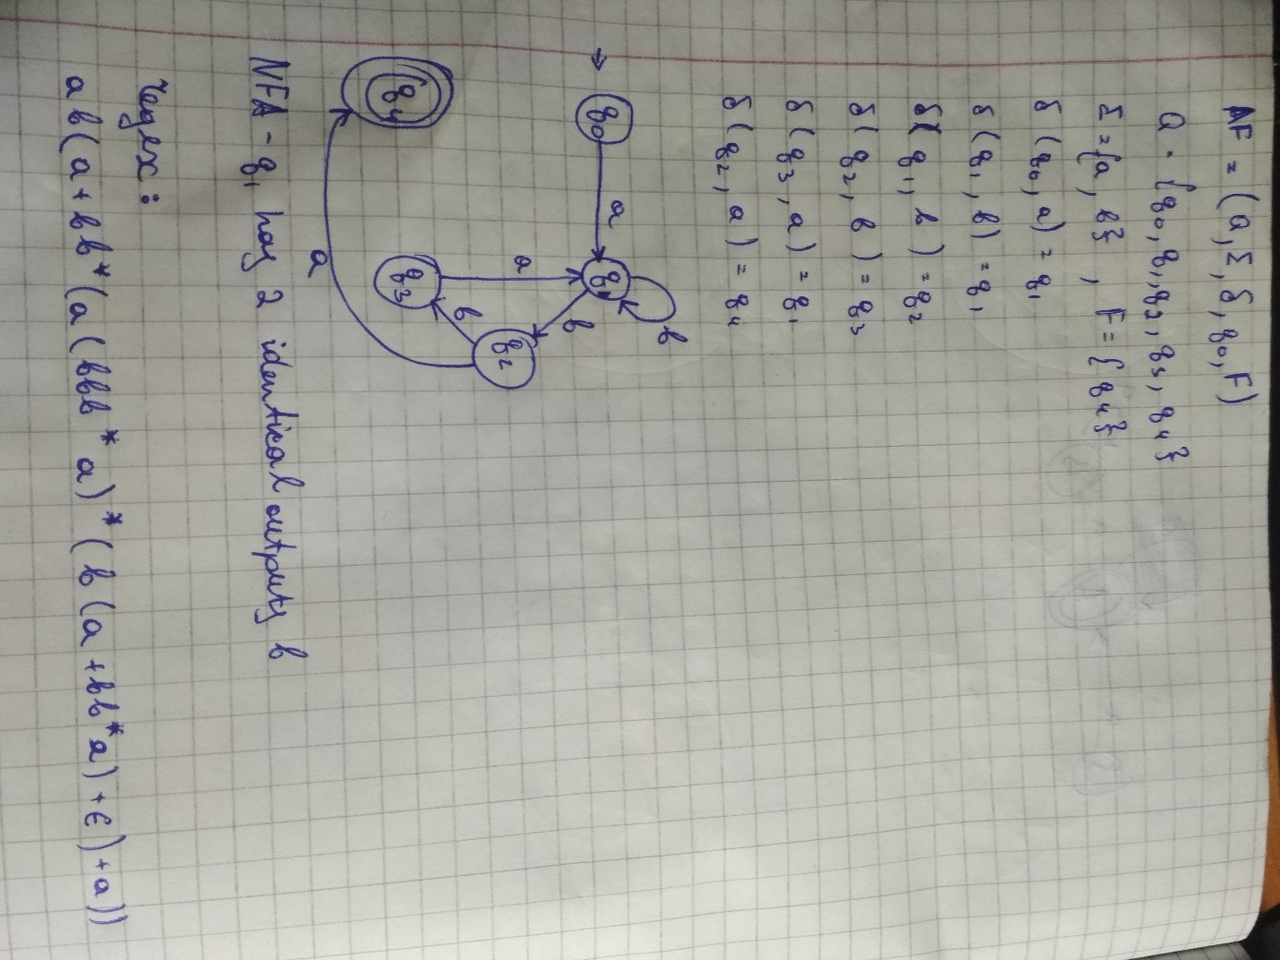 AF = (Q, Σ, δ, q₀, F)
Q = {q₀, q₁, q₂, q₃, q₄}
Σ = {a, b} , F = {q₄}
δ (q₀, a) = q₁
δ (q₁, b) = q₁
δ( q₁, b ) = q₂
δ( q₂, b ) = q₃
δ (q₃, a) = q₁
δ (q₂, a ) = q₄
b
q₀ a q₁
b
a q₂
b
q₄ q₃
a
NFA - q₁ has 2 identical outputs b
regex:
ab(a+bb*(a(bbb*a)*(b(a+bb*a)+ϵ)+a))